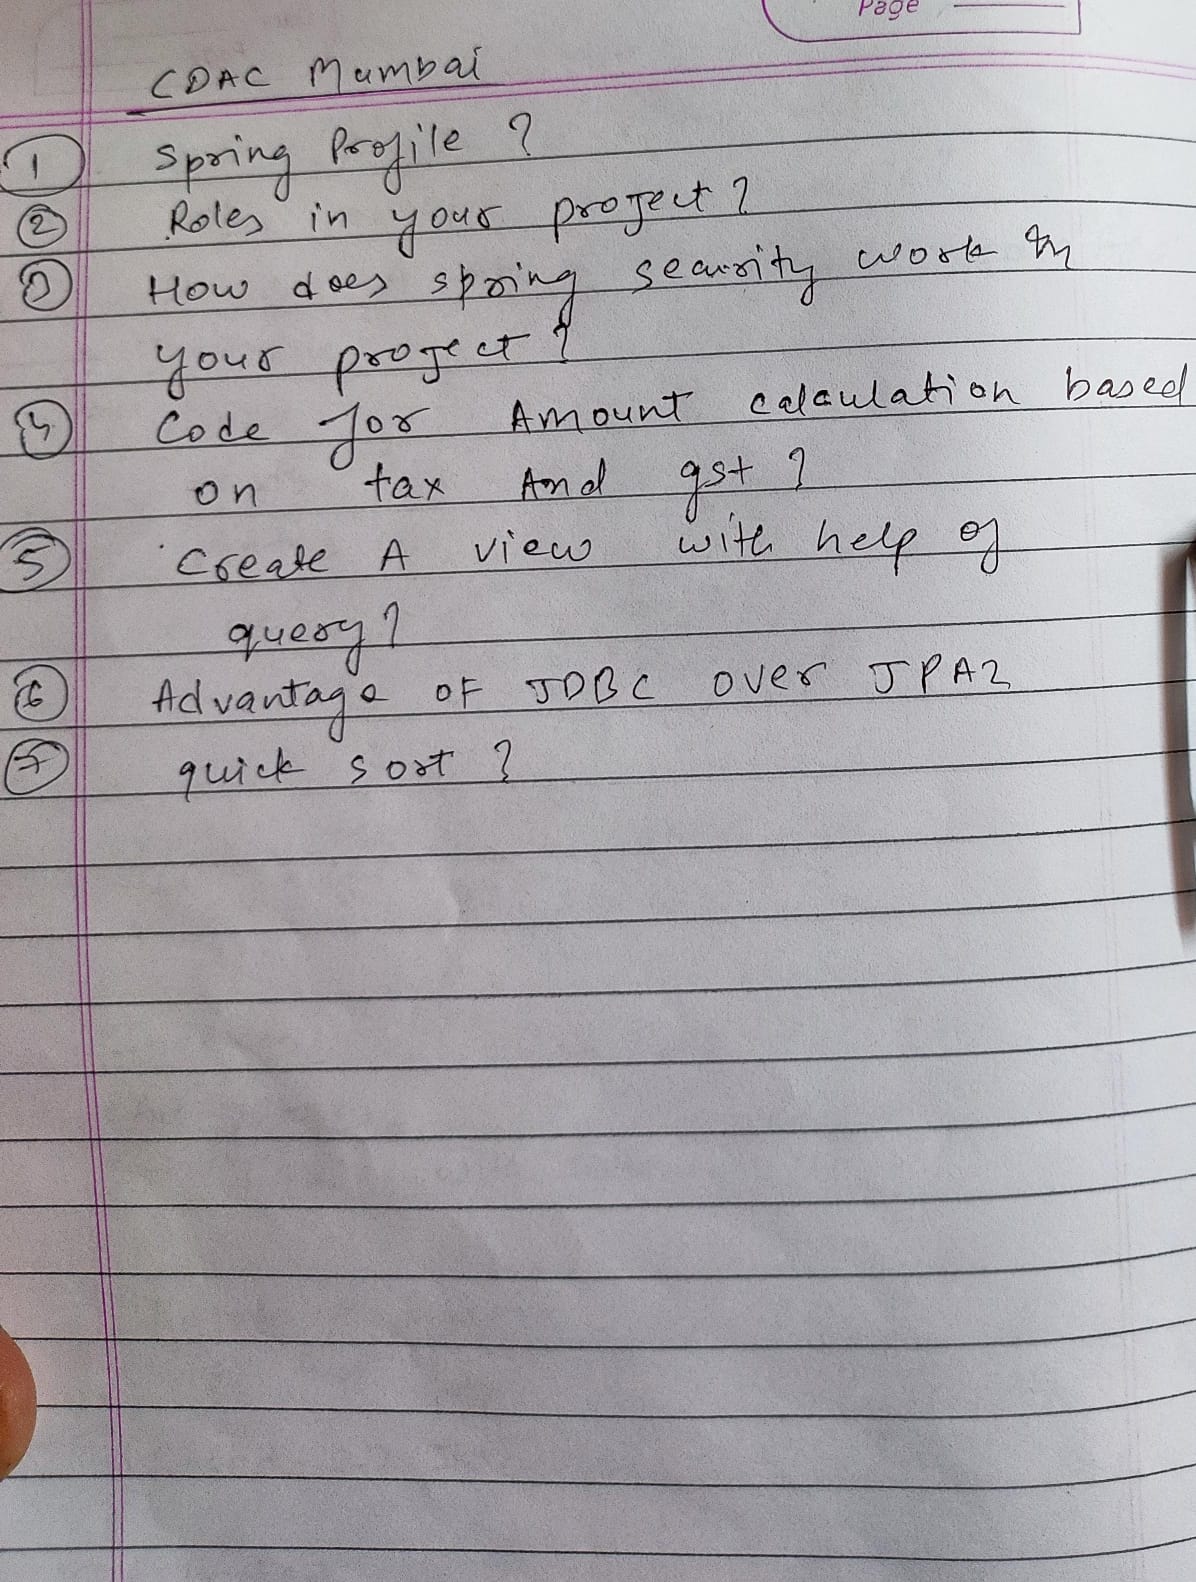 Page
CDAC Mumbai
1 Spring Profile ?
2 Roles in your project ?
3 How does spring security work in
your project ?
4 Code for Amount calculation based
on tax And gst ?
5 Create A view with help of
query ?
6 Advantage OF JDBC over JPA ?
7 quick sort ?